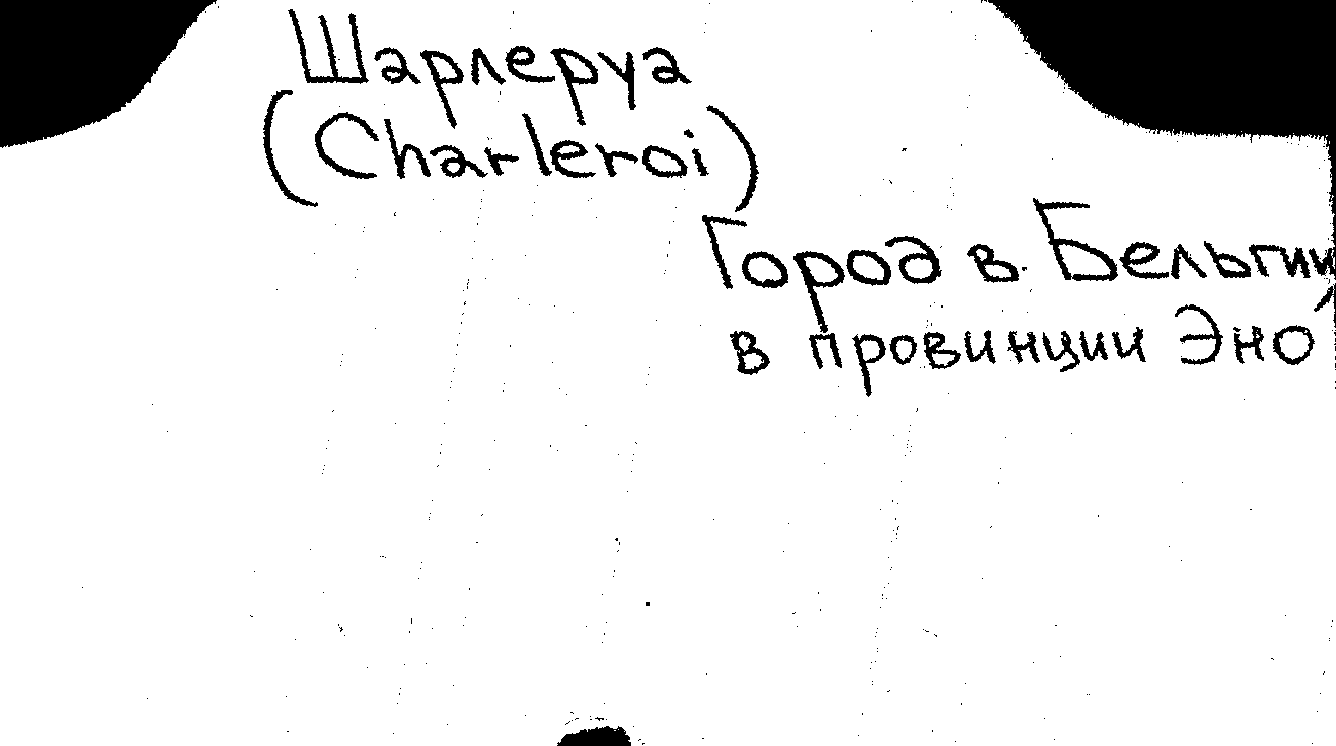 Шарлеруа
(Charleroi)
Город в Бельгии,
в провинции Эно